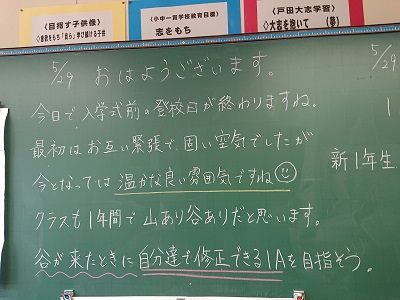 〈目指す子供像〉
◇意欲をもち「自ら」学び続ける子供
〈小中一貫学校教育目標〉
志をもち
〈戸田大志学習〉
◇大志を抱いて (夢)
5/29 おはようございます。
今日で入学式前の登校日が終わりますね。
最初はお互い緊張で固い空気でしたが
今となっては温かな良い雰囲気ですね
クラスも1年間で山あり谷ありだと思います。
谷が来たときに自分達で修正できる1Aを目指そう。
5/29
1
新1年生